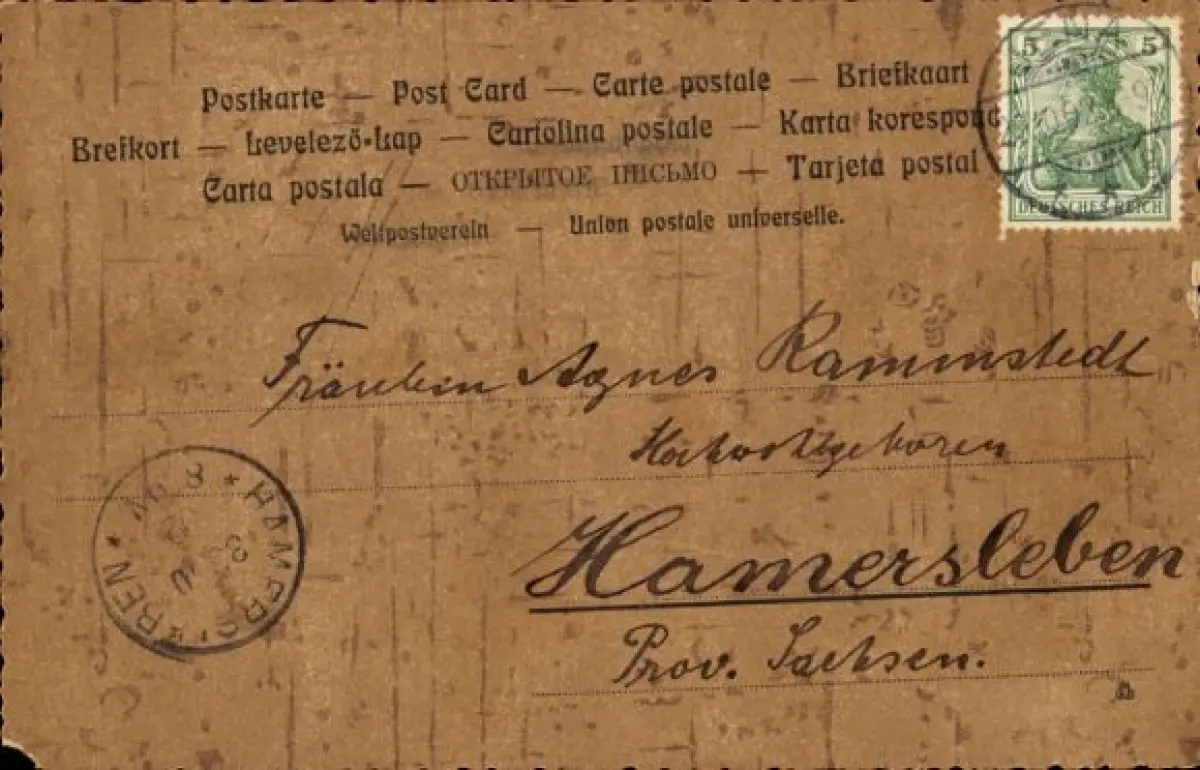 Postkarte — Post Card — Carte postale — Briefkaart
Brefkort — Levelező-Lap — Cartolina postale — Karta korespond
Carta postala — ОТКРЫТОЕ ПИСЬМО — Tarjeta postal
Weltpostverein — Union postale universelle.
5 5
DEUTSCHES REICH
Fräulein Agnes Rammstedt
Hochwohlgeboren
Hamersleben
Prov. Sachsen.
* HAMERSLEBEN *